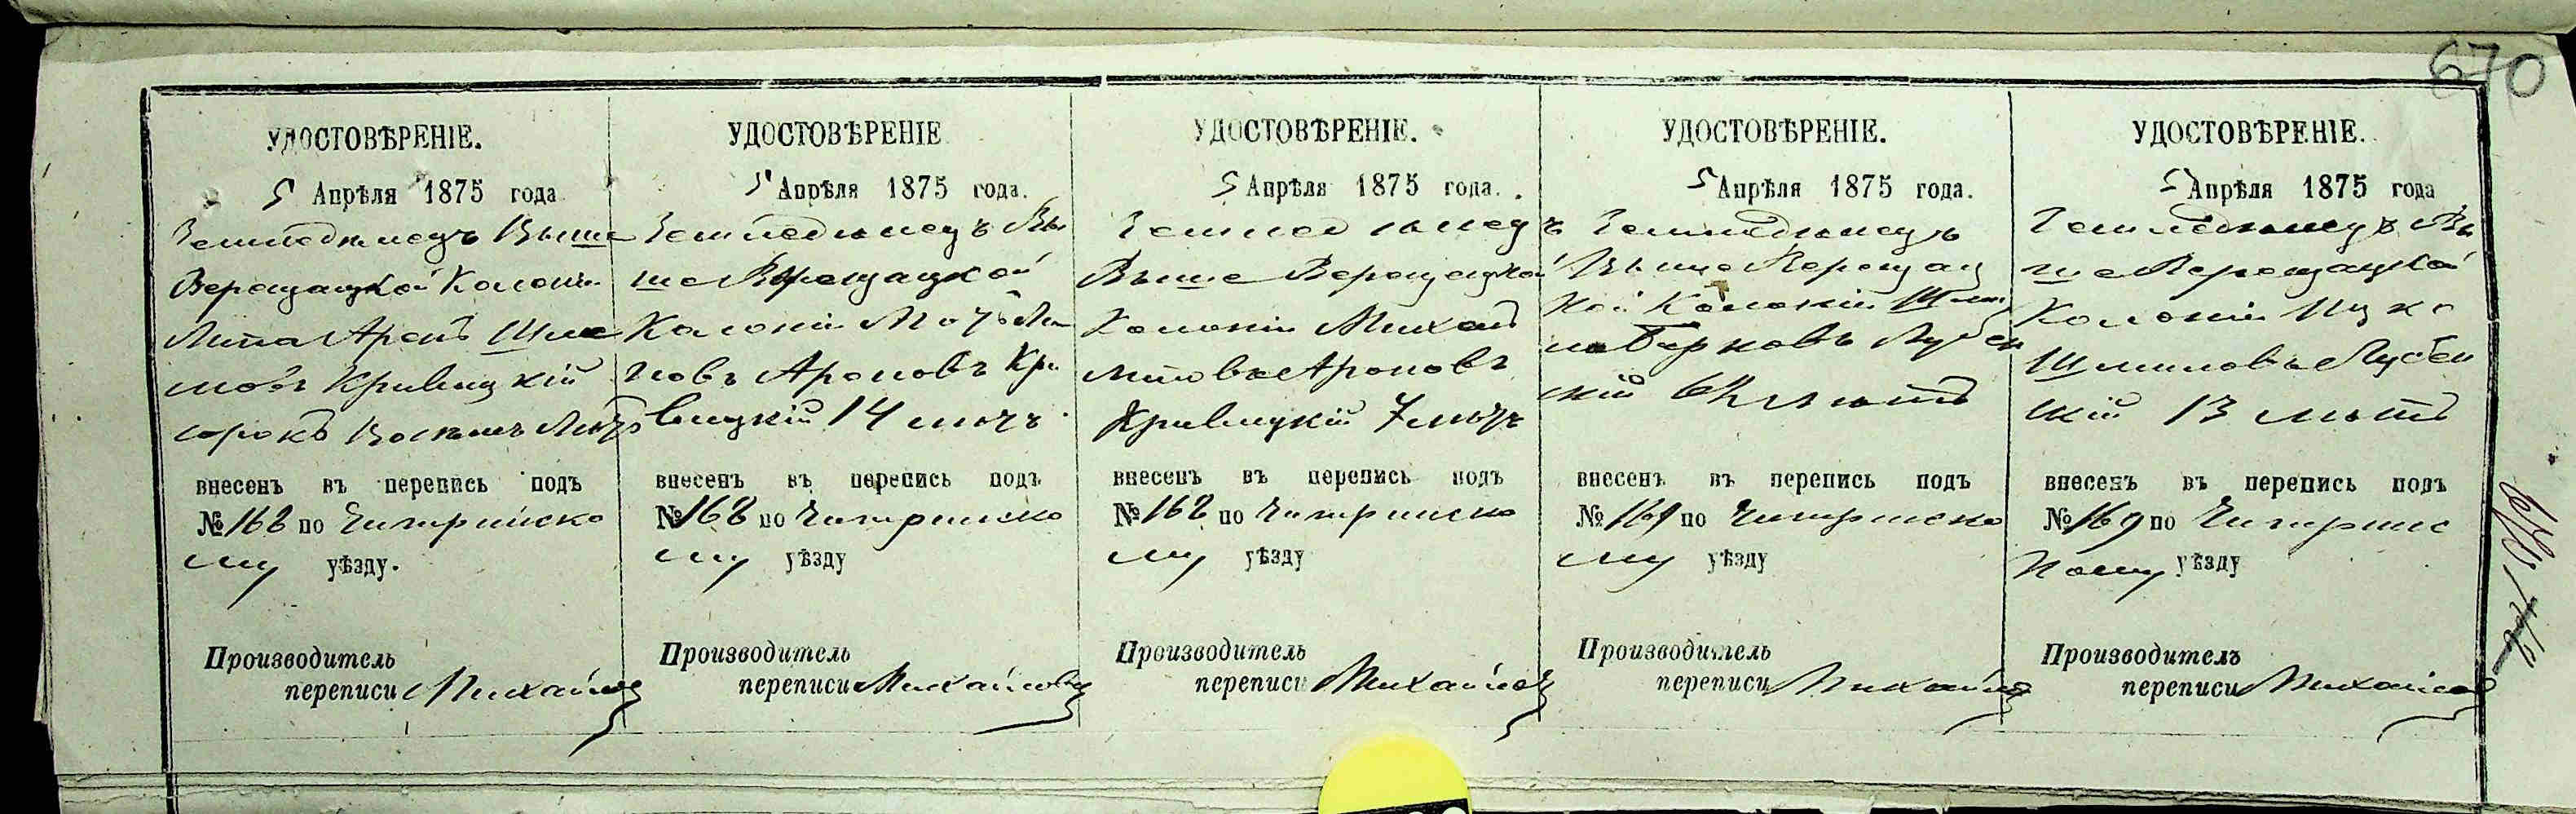 670
УДОСТОВѢРЕНІЕ.
5 Апрѣля 1875 года
Земледѣлецъ Выше
Верещацкой Колоніи
Липа Аронъ Шле
мовъ Кривицкій
сорокъ Восемь лѣтъ
внесенъ въ перепись подъ
№ 168 по Чигиринско
му уѣзду.
Производитель
переписи Михайловъ
УДОСТОВѢРЕНІЕ
5 Апрѣля 1875 года.
Земледѣлецъ Вы
ше Верещацкой
Колоніи
Ароновъ Кри
вицкій 14 лѣтъ
внесенъ въ перепись подъ
№ 168 по Чигиринско
му уѣзду
Производитель
переписи Михайловъ
УДОСТОВѢРЕНІЕ.
5 Апрѣля 1875 года.
Земледѣлецъ
Выше Верещацкой
Колоніи
Ароновъ
Кривицкій 7 лѣтъ
внесенъ въ перепись подъ
№ 168 по Чигиринско
му уѣзду
Производитель
переписи Михайловъ
УДОСТОВѢРЕНІЕ.
5 Апрѣля 1875 года.
Земледѣлецъ
Выше Верещац
кой Колоніи
Берковъ
скій лѣтъ
внесенъ въ перепись подъ
№ 169 по Чигиринско
му уѣзду
Производитель
переписи Михайловъ
УДОСТОВѢРЕНІЕ.
5 Апрѣля 1875 года
Земледѣлецъ Вы
ше Верещацкой
Колоніи Ицко
Шлиомовъ
скій 13 лѣтъ
внесенъ въ перепись подъ
№ 169 по Чигиринс
кому уѣзду
Производитель
переписи Михайловъ